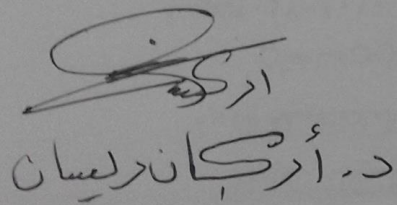 د. أركان ريسان